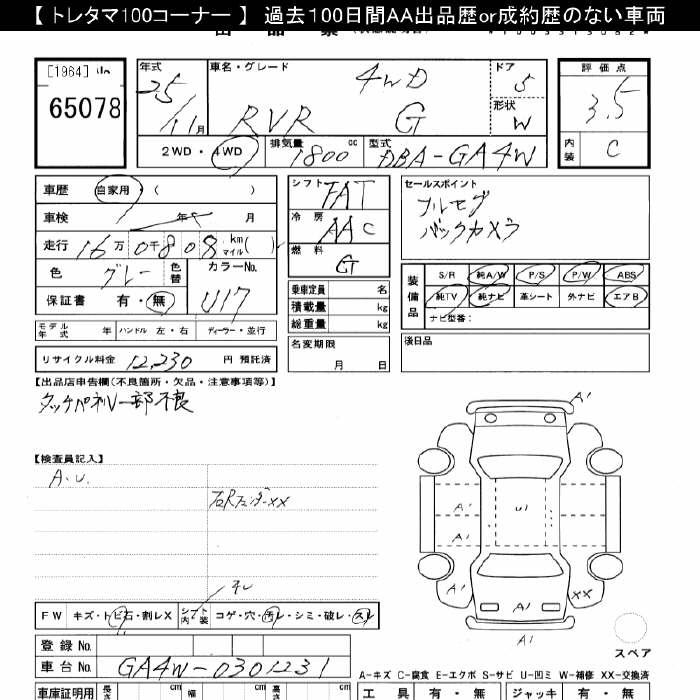 【 トレタマ100コーナー 】 過去100日間AA出品歴or成約歴のない車両
[1964]
65078
年式 車名・グレード ドア 評価点
25 4WD 5 3.5
11月 RVR G 形状 W
2WD・4WD 排気量 1800 cc 型式 DBA-GA4W 内装 C
車歴 自家用 ( )
シフト FAT
セールスポイント
フルセグ
バックカメラ
車検 年 月
冷房 AAC
走行 16万0千808 km マイル ( )
燃料 G
色 グレー 色替 カラーNo. U17
保証書 有・無
乗車定員 名
積載量 kg
総重量 kg
装備品 S/R 純A/W P/S P/W ABS
純TV 純ナビ 革シート 外ナビ エアB
ナビ型番:
モデル年式 年 ハンドル 左・右 ディーラー・並行
名変期限 月 日
後日品
リサイクル料金 12,230 円 預託済
【出品店申告欄(不良箇所・欠品・注意事項等)】
タッチパネル一部不良
【検査員記入】
A.U.
右Rフェンダーxx
FW キズ・トビ石・割レX シフト 内装 コゲ・穴・汚レ・シミ・破レ・スレ
A1
A1 U1
A1
A1 A1 XX
A1
スペア
登録 No.
車台 No. GA4W-0301231
A-キズ C-腐食 E-エクボ S-サビ U-凹ミ W-補修 XX-交換済
車庫証明用 長さ cm 幅 cm 高さ cm 工具 有・無 ジャッキ 有・無